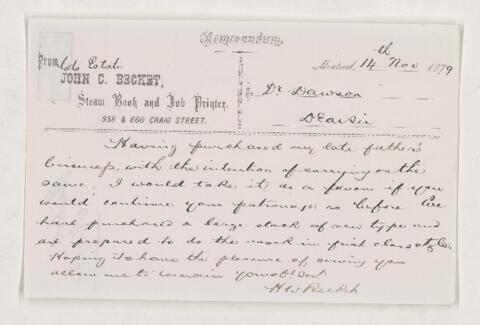 Memorandum.
From Late Estate
JOHN C. BECKET,
Steam Book and Job Printer.
658 & 660 CRAIG STREET.
Montreal, 14th Nov 1879
To
Dr Dawson
Dear Sir
Having purchased my late father's
business, with the intention of carrying on the
same, I would take it as a favour if you
would continue your patronage as before. We
have purchased a large stock of new type and
are prepared to do the work in first class style.
Hoping to have the pleasure of serving you
allow me to remain your obt Servt
H W Becket